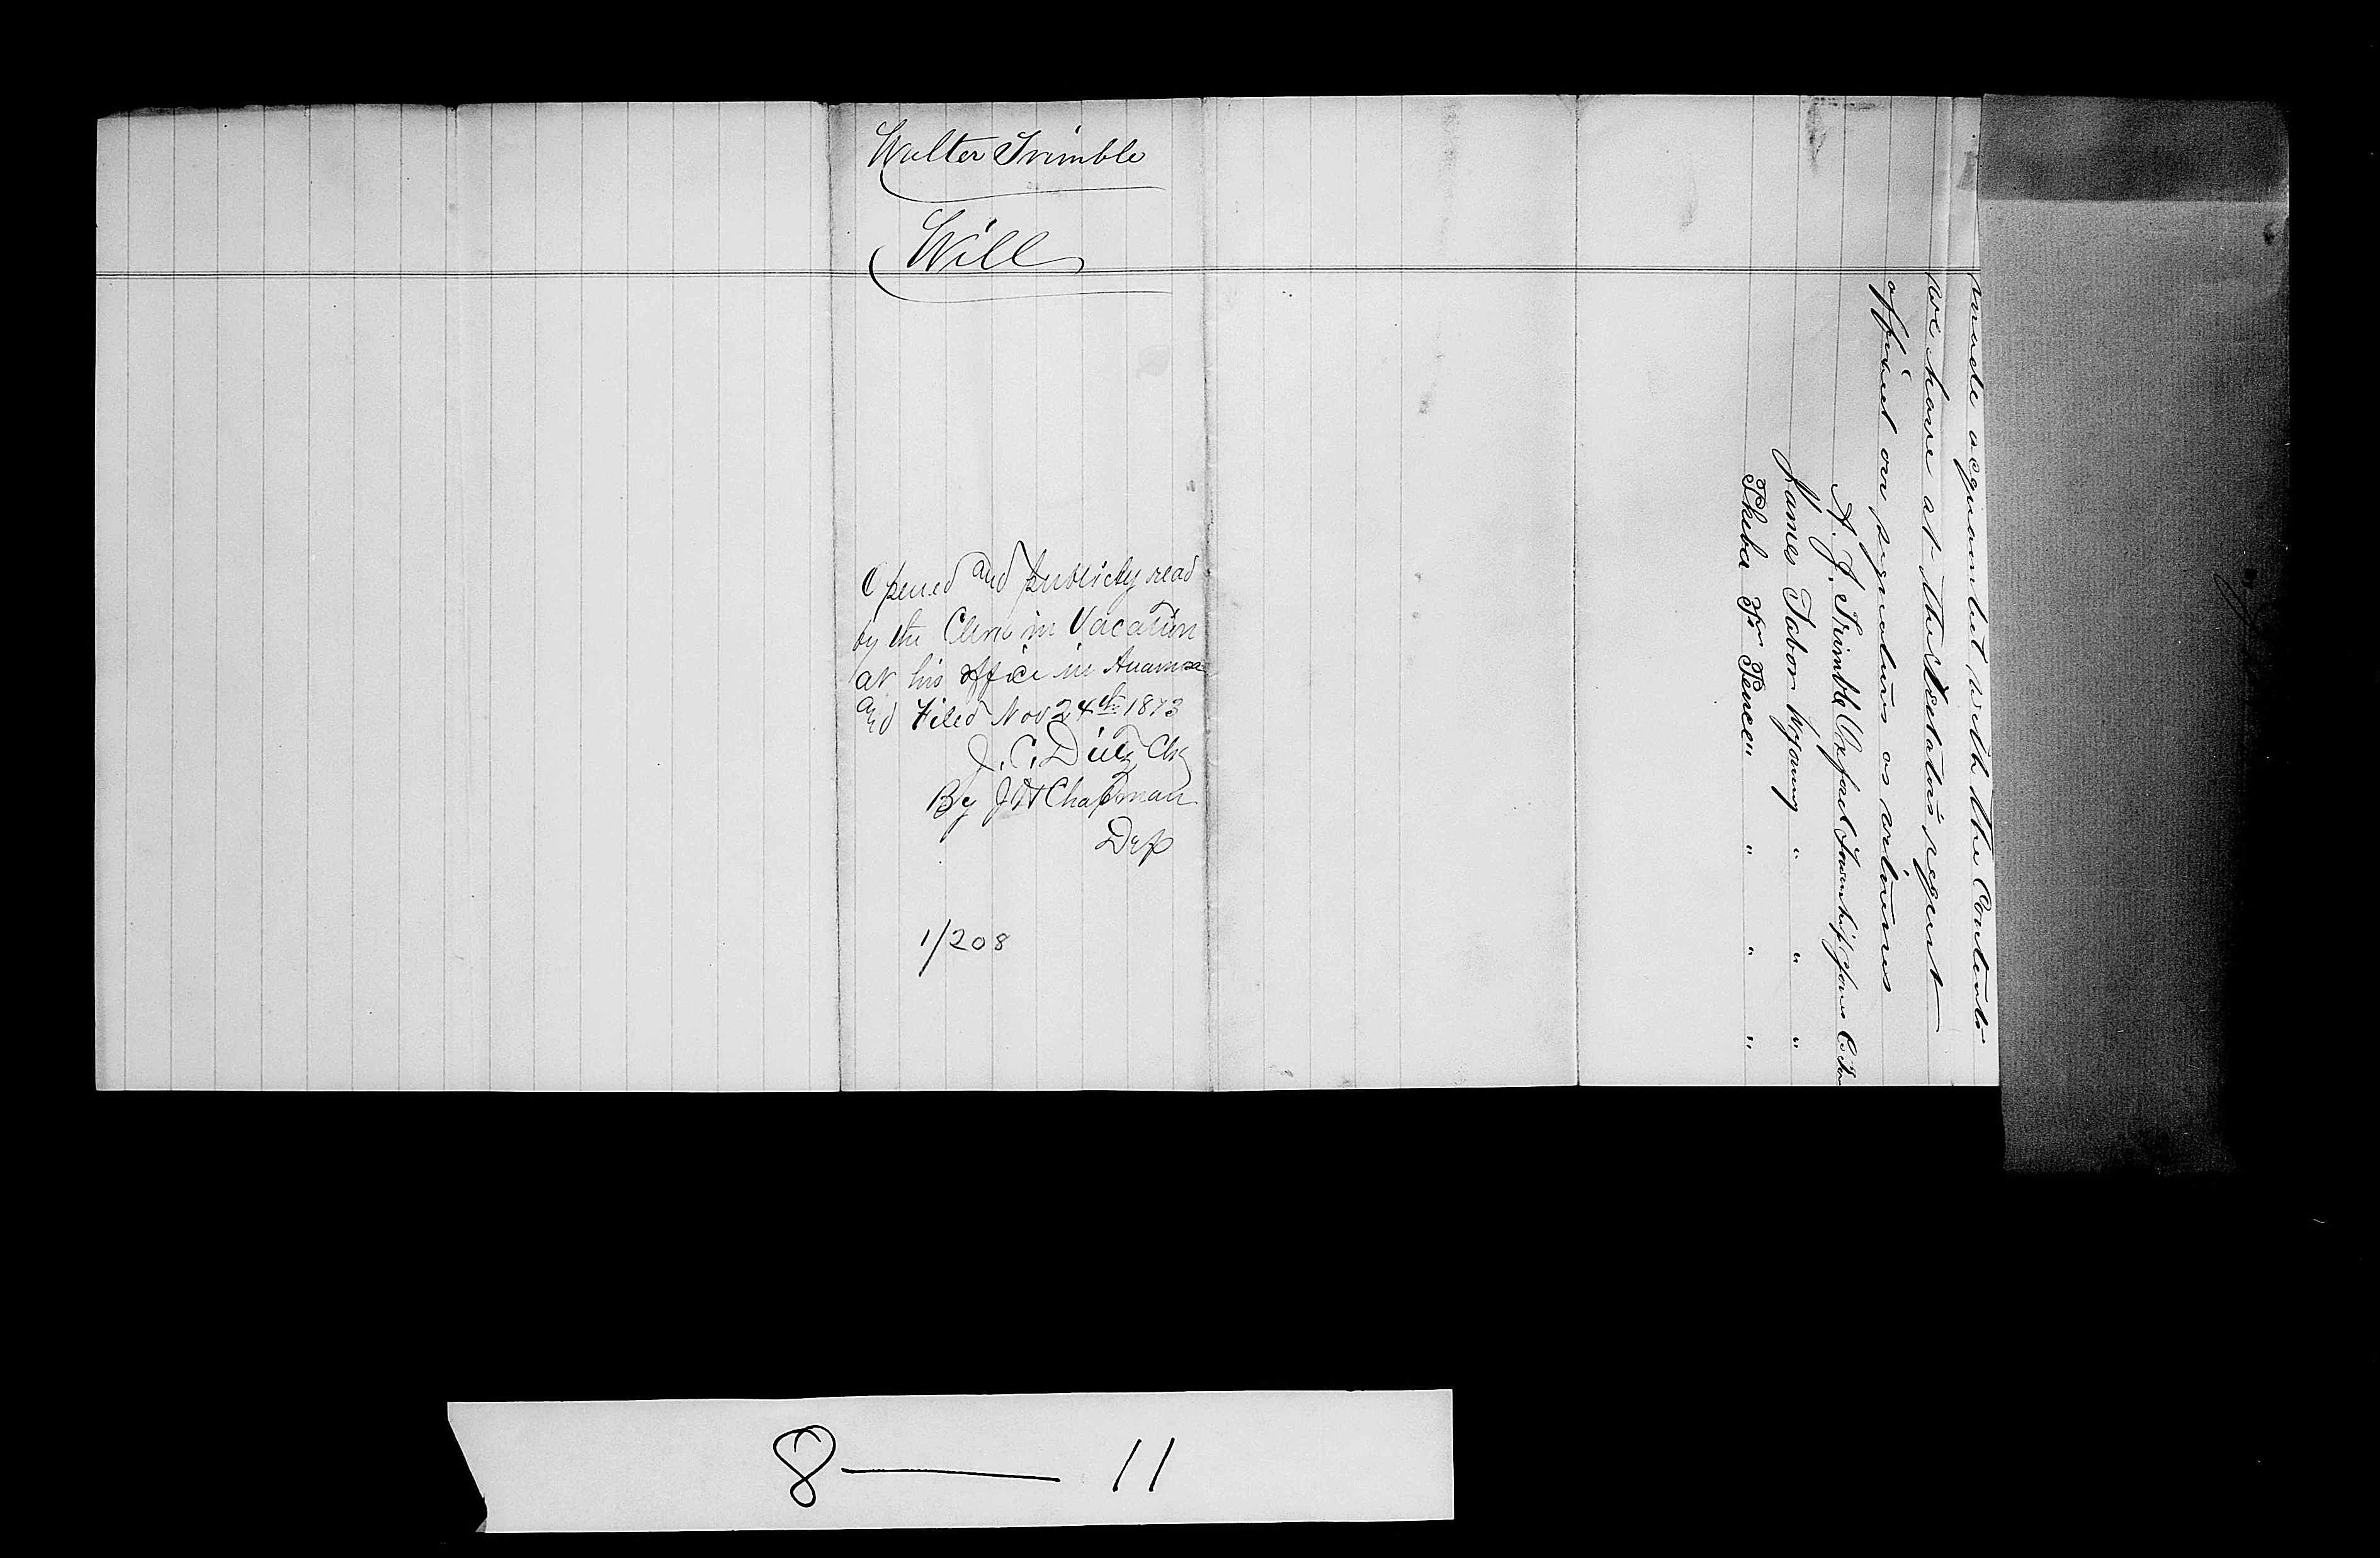 Walter Trimble
Will
Opened and publicly read
by the Clerk in Vacation
at his office in Anamosa
and Filed Nov 24th 1873
J. C. Dietz Clk
By J H Chapman
Dep
1/208
made acquainted with the Contents
we have at the Testators request
affixed our signatures as witness
A. J. Trimble Oxford Township Jones Co
James Tabor Wyoming " " "
Pheba Pence " " " "
8 — 11